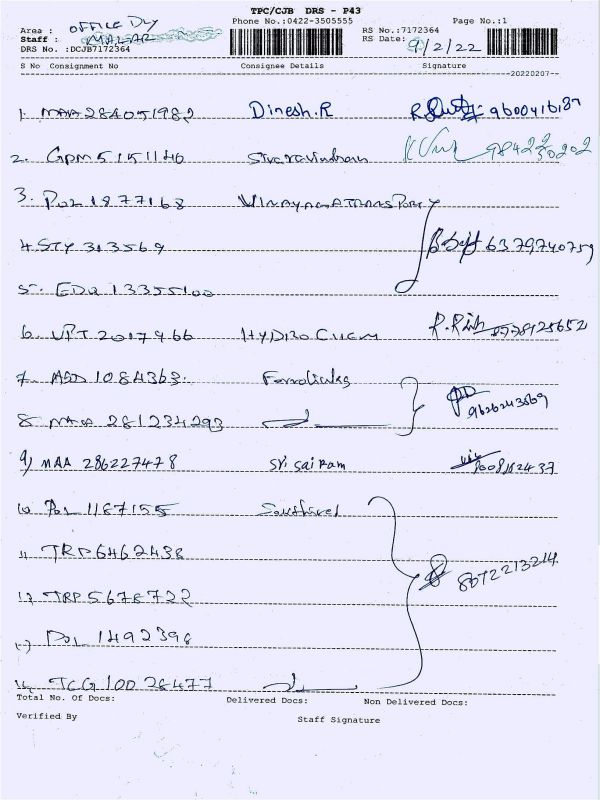 TPC/CJB DRS - P43
Area : OFFICE DLY
Phone No.:0422-3505555
Page No.:1
Staff : MALAR
RS No.:7172364
RS Date: 9/2/22
DRS No. :DCJB7172364
S No Consignment No Consignee Details Signature
--20220207--
1. MAA 284051982 Dinesh.R 9600416187
2. GPM 5151140 Sivaravindran 9842250202
3. POL 1877168 VINAYAGA TRANSPORT
4. STY 313569 6379740759
5. EDQ 13355100
6. VPT 2017966 HYDRO CHEM
7. ASD 1084363 Ferrolinks
8. MAA 281234293 9626243569
9) MAA 286227478 Sri Sai Ram
10 POL 1187155
11 TRP 6462438
12 TRP 5678722 8072213214
13) POL 1492398
14 TCG 10028477
Total No. Of Docs: Delivered Docs: Non Delivered Docs:
Verified By Staff Signature